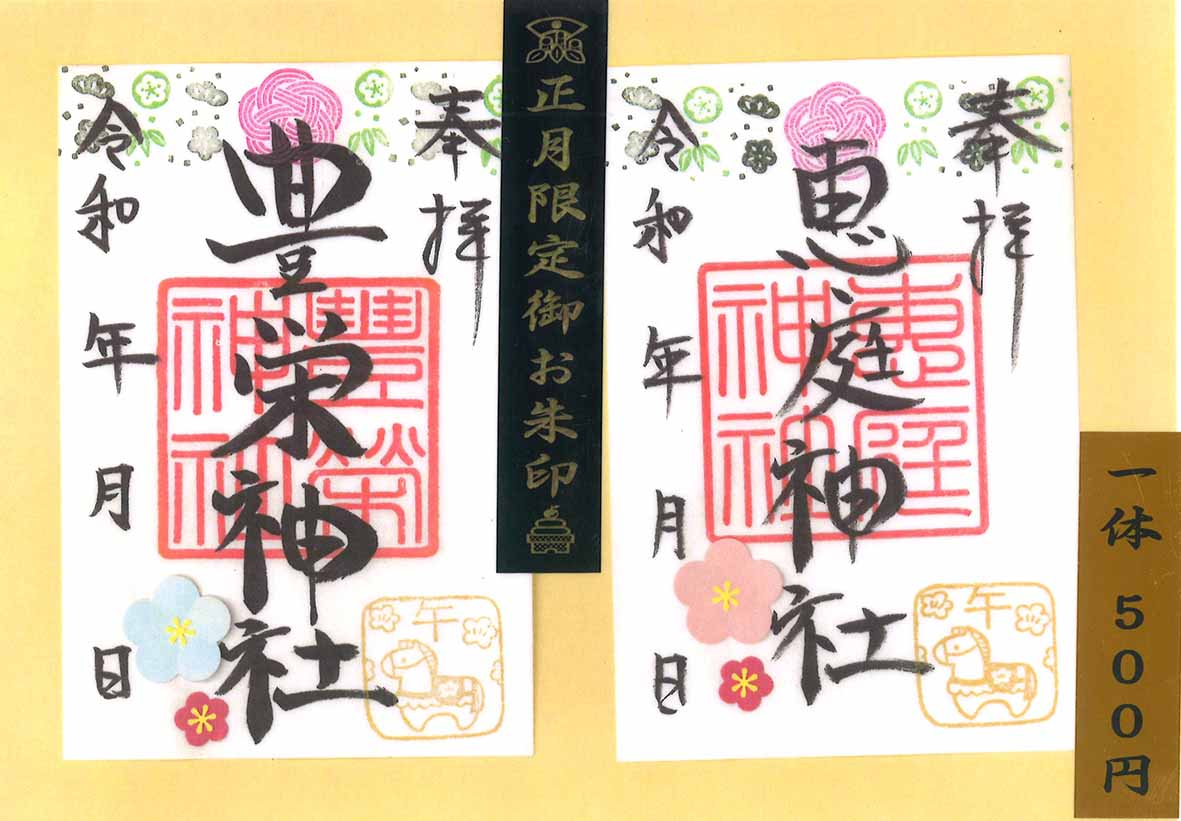 奉拝
恵庭神社
恵庭神社
令和 年 月 日
午
正月限定御お朱印
奉拝
豊栄神社
豊榮神社
令和 年 月 日
午
一体 500円